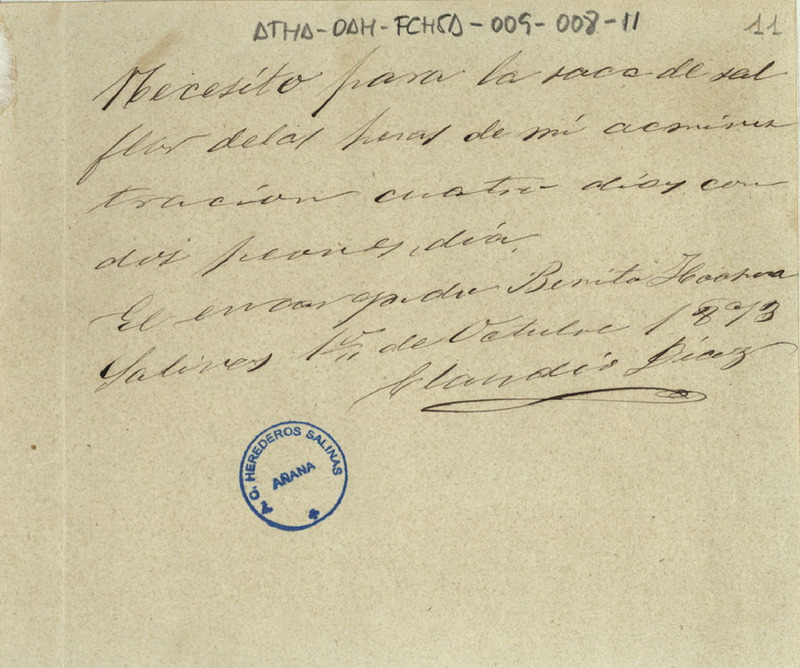 ATHA-DAH-FCHSA-009-008-11
11
Necesito para la saca de sal
flor delas heras de mi adminis
tracion cuatro dias con
dos peones, dia,
El encargado Benito
Salinas 15 de Octubre 1893
Claudio Diaz
A. C. HEREDEROS SALINAS
AÑANA